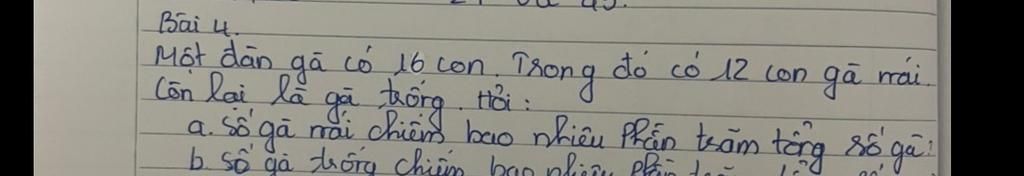 Bài 4.
Một đàn gà có 16 con. Trong đó có 12 con gà mái.
Còn lại là gà trống. Hỏi:
a. Số gà mái chiếm bao nhiêu phần trăm tổng số gà?
b. Số gà trống chiếm bao nhiêu phần